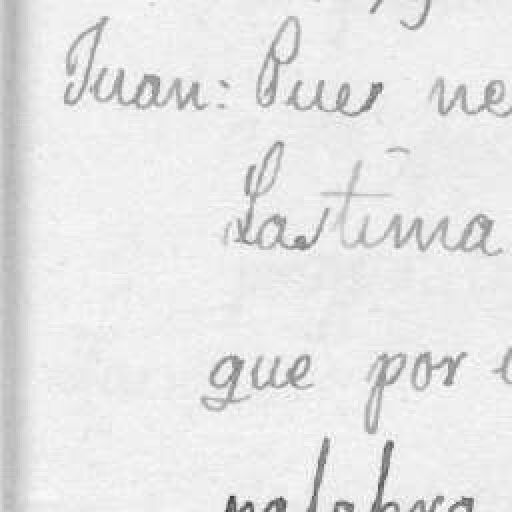 Juan: Pues ne
Lastima
que por
palabra